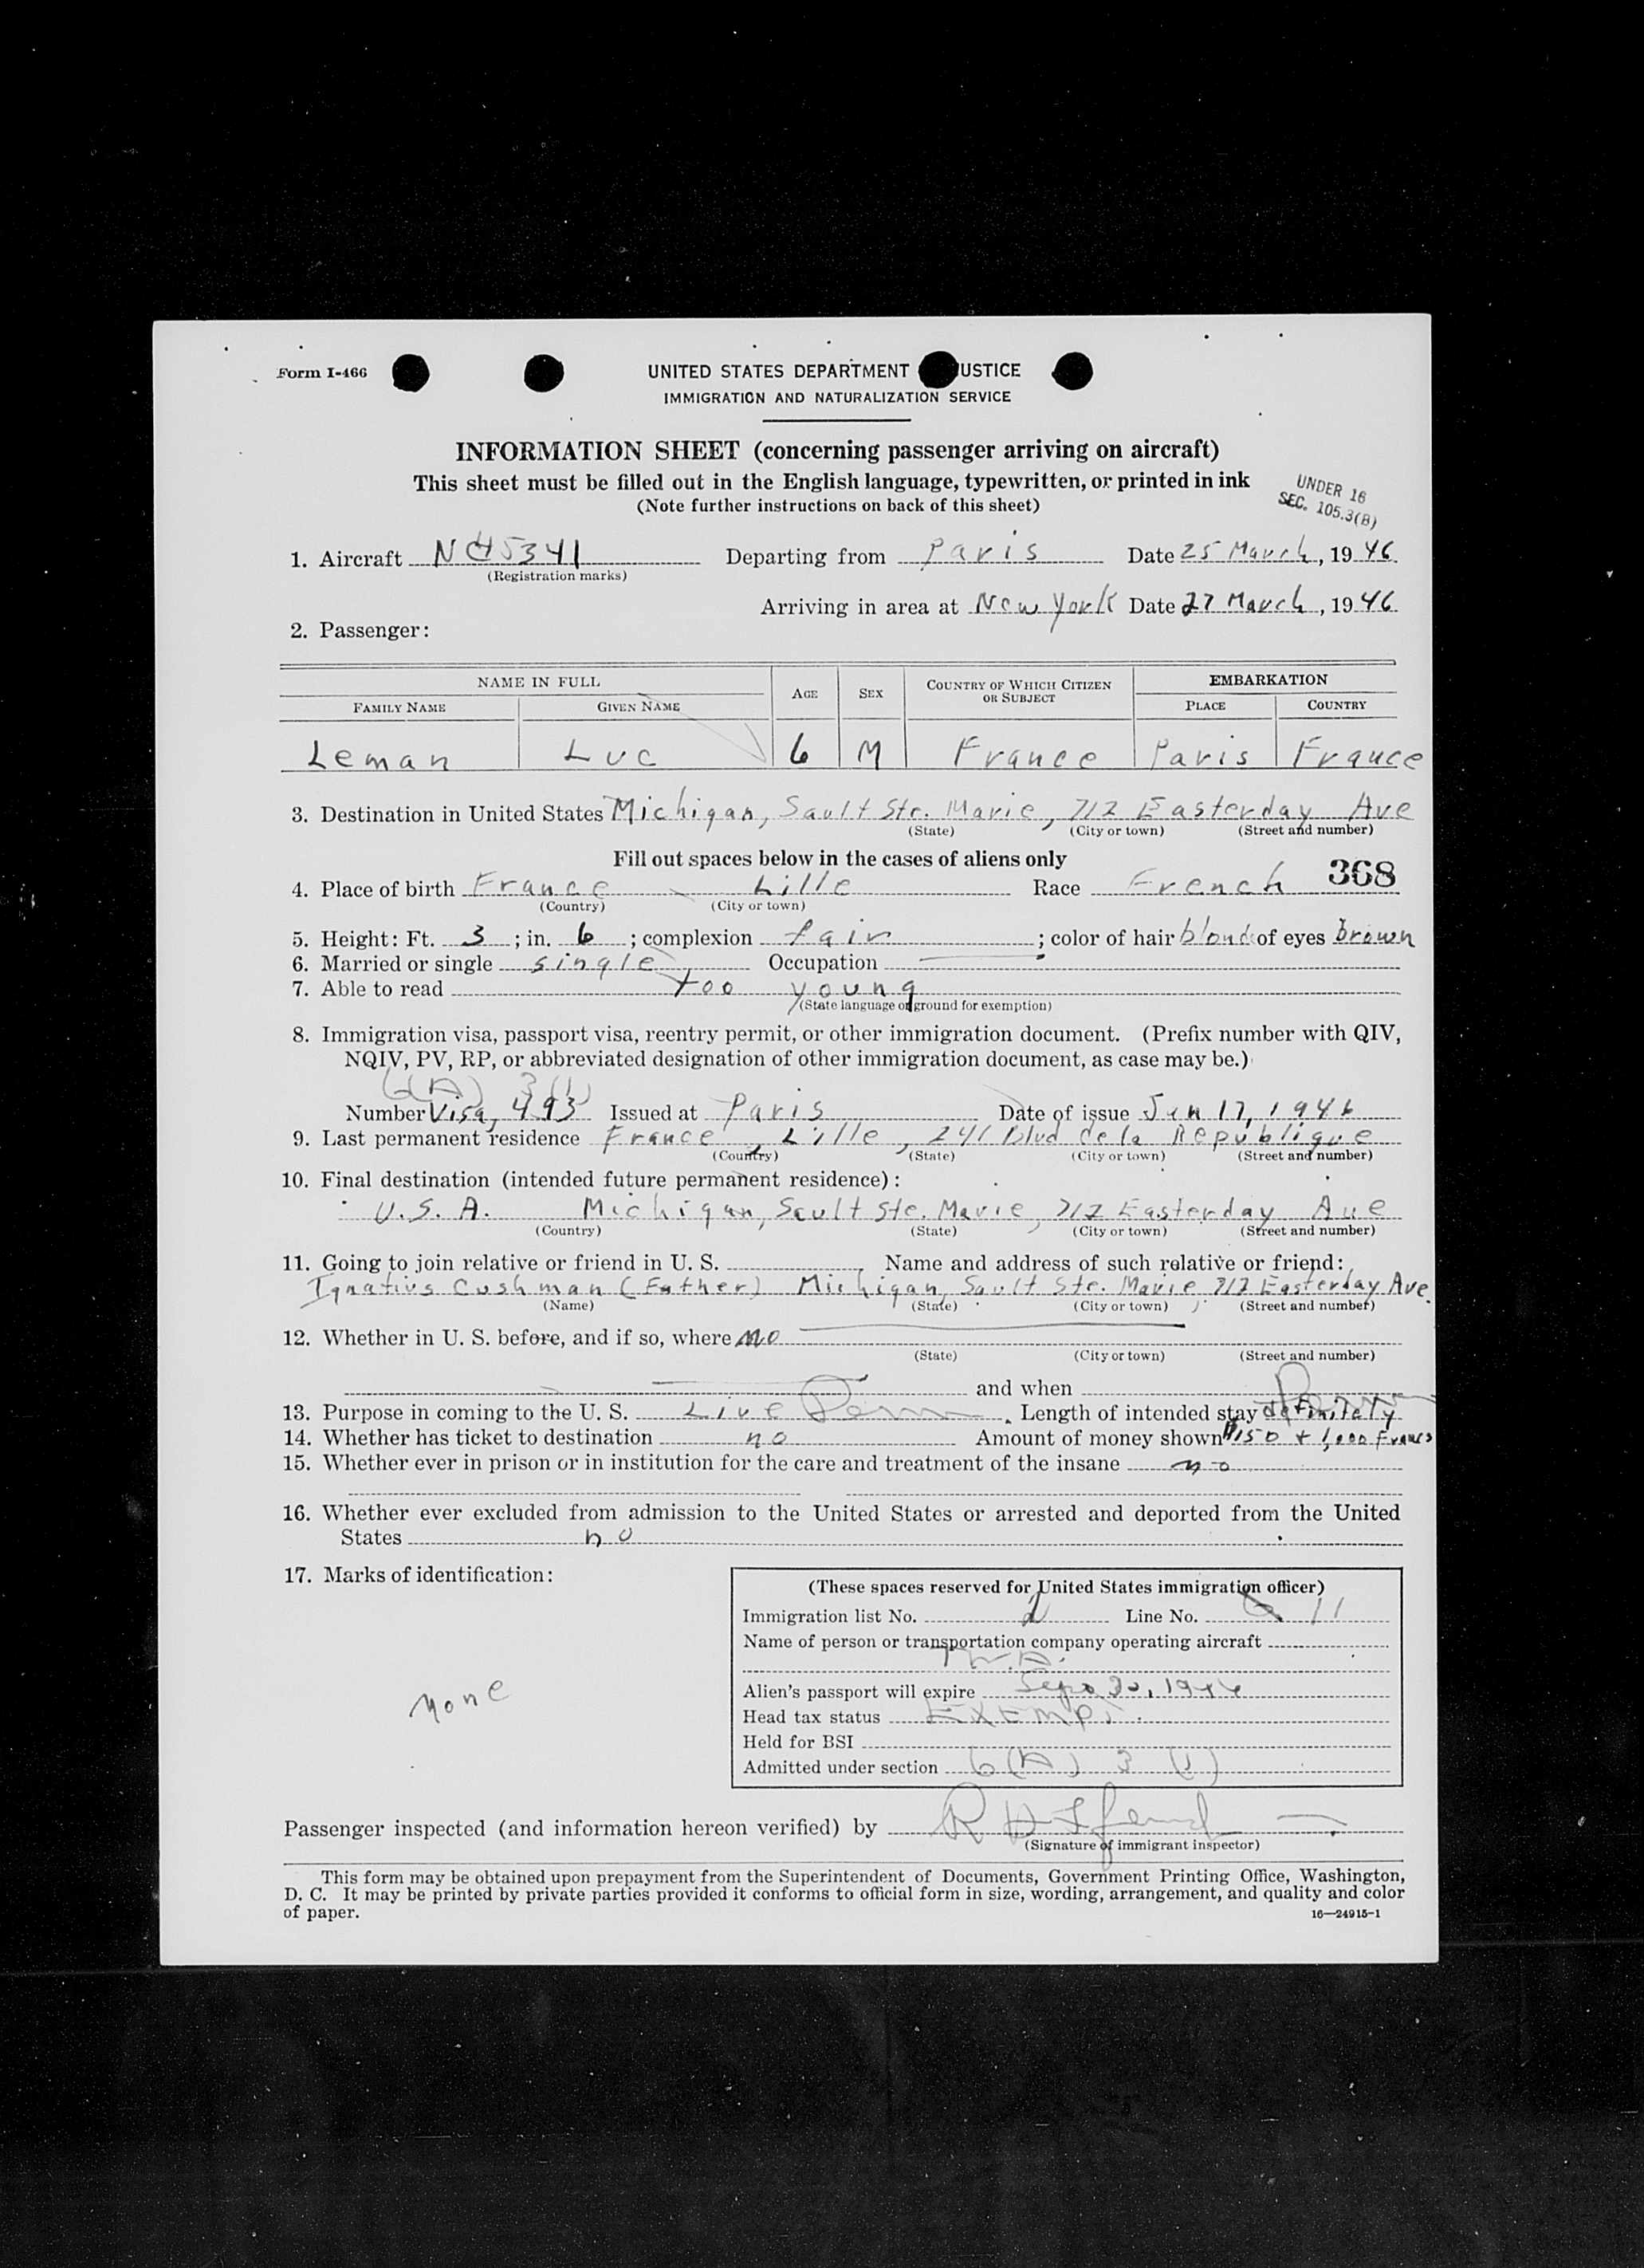 Form I-466
UNITED STATES DEPARTMENT USTICE
IMMIGRATION AND NATURALIZATION SERVICE
INFORMATION SHEET (concerning passenger arriving on aircraft)
This sheet must be filled out in the English language, typewritten, or printed in ink
(Note further instructions on back of this sheet)
UNDER 16
SEC. 105.3(B)
1. Aircraft Departing from Paris Date 25 March, 1946
(Registration marks)
Arriving in area at New York Date 27 March, 1946
2. Passenger:
NAME IN FULL AGE SEX COUNTRY OF WHICH CITIZEN OR SUBJECT EMBARKATION
FAMILY NAME GIVEN NAME PLACE COUNTRY
Leman Luc 6 M France Paris France
3. Destination in United States Michigan, Sault Ste. Marie, 712 Easterday Ave
(State) (City or town) (Street and number)
Fill out spaces below in the cases of aliens only
368
4. Place of birth France Lille Race French
(Country) (City or town)
5. Height: Ft. 3 ; in. 6 ; complexion fair ; color of hair blond of eyes brown
6. Married or single single Occupation
7. Able to read too young
(State language or ground for exemption)
8. Immigration visa, passport visa, reentry permit, or other immigration document. (Prefix number with QIV,
NQIV, PV, RP, or abbreviated designation of other immigration document, as case may be.)
6(A) 3(1)
Number Visa, 493 Issued at Paris Date of issue Jan 17, 1946
9. Last permanent residence France, Lille, 241 Blvd de la Republique
(Country) (State) (City or town) (Street and number)
10. Final destination (intended future permanent residence):
U.S.A. Michigan, Sault Ste. Marie, 712 Easterday Ave
(Country) (State) (City or town) (Street and number)
11. Going to join relative or friend in U. S. Name and address of such relative or friend:
Ignatius Cushman (Father) Michigan, Sault Ste. Marie, 712 Easterday Ave.
(Name) (State) (City or town) (Street and number)
12. Whether in U. S. before, and if so, where no
(State) (City or town) (Street and number)
and when
13. Purpose in coming to the U. S. Live Perm. Length of intended stay definitely
14. Whether has ticket to destination no Amount of money shown $150 + 1,000 Francs
15. Whether ever in prison or in institution for the care and treatment of the insane no
16. Whether ever excluded from admission to the United States or arrested and deported from the United
States no
17. Marks of identification:
none
(These spaces reserved for United States immigration officer)
Immigration list No. Line No. 11
Name of person or transportation company operating aircraft
T.W.A.
Alien's passport will expire 1946
Head tax status EXEMPT
Held for BSI
Admitted under section 6(A) 3 (1)
Passenger inspected (and information hereon verified) by
(Signature of immigrant inspector)
This form may be obtained upon prepayment from the Superintendent of Documents, Government Printing Office, Washington,
D. C. It may be printed by private parties provided it conforms to official form in size, wording, arrangement, and quality and color
of paper.
16—24915-1